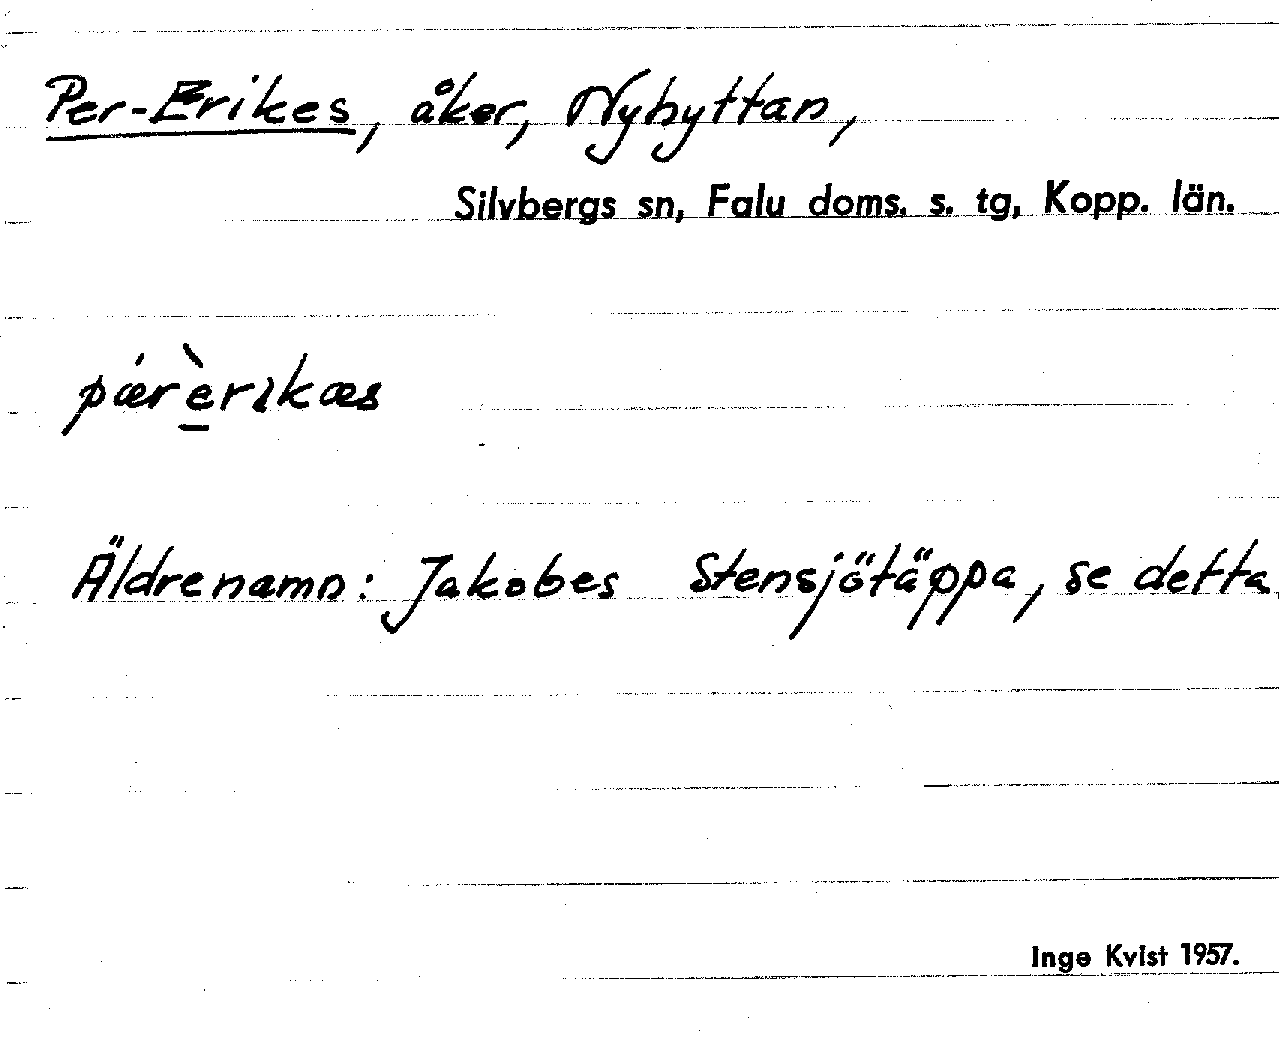 Per-Erikes, åker, Nyhyttan,
Silvbergs sn, Falu doms. s. tg, Kopp. län.
pǽrè̱rikæs
Äldre namn: Jakobes Stensjötäppa, se detta.
Inge Kvist 1957.